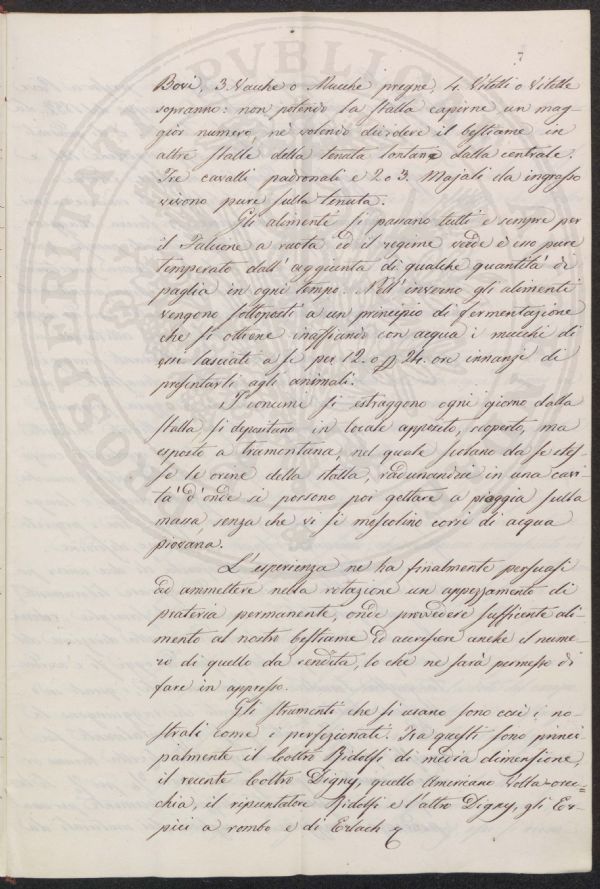 7
Bovi, 3. Vacche o Mucche pregne, 4. Vitelli o Vitelle
sopranno: non potendo la stalla capirne un mag-
gior numero, nè volendo dividere il bestiame in
altre stalle della tenuta lontane dalla centrale.
Tre cavalli padronali e 2 o 3. Majali da ingrasso
vivono pure sulla tenuta.
Gli alimenti si passano tutti e sempre per
il Falcione a ruota ed il regime verde è esso pure
temperato dall' aggiunta di qualche quantità di
paglia in ogni tempo. Nell' inverno gli alimenti
vengono sottoposti a un principio di fermentazione
che si ottiene inaffiando con acqua i mucchi di
essi lasciati a sè per 12. o 24. ore innanzi di
presentarli agli animali.
I concimi si estraggono ogni giorno dalla
stalla si depositano in locale apposito, scoperto, ma
esposto a tramontana, nel quale scolano da se stes-
se le orine della stalla, radunandosi in una cavi-
tà d'onde si possono poi gettare a pioggia sulla
massa, senza che vi si mescolino corsi di acqua
piovana.
L'esperienza ne ha finalmente persuasi
ad ammettere nella rotazione un appezzamento di
prateria permanente, onde provvedere sufficiente ali-
mento al nostro bestiame ed accrescere anche il nume-
ro di quello da rendita, lo che ne sarà permesso di
fare in appresso.
Gli strumenti che si usano sono così i no-
strali come i perfezionati. Tra questi sono princi-
palmente il Coltro Ridolfi di media dimensione,
il recente Coltro Digny, quello Americano Volta-orec-
chia, il ripuntatore Ridolfi e l'altro Digny, gli Er-
pici a rombo e di Erlach
PUBLIC
PROSPERITATI